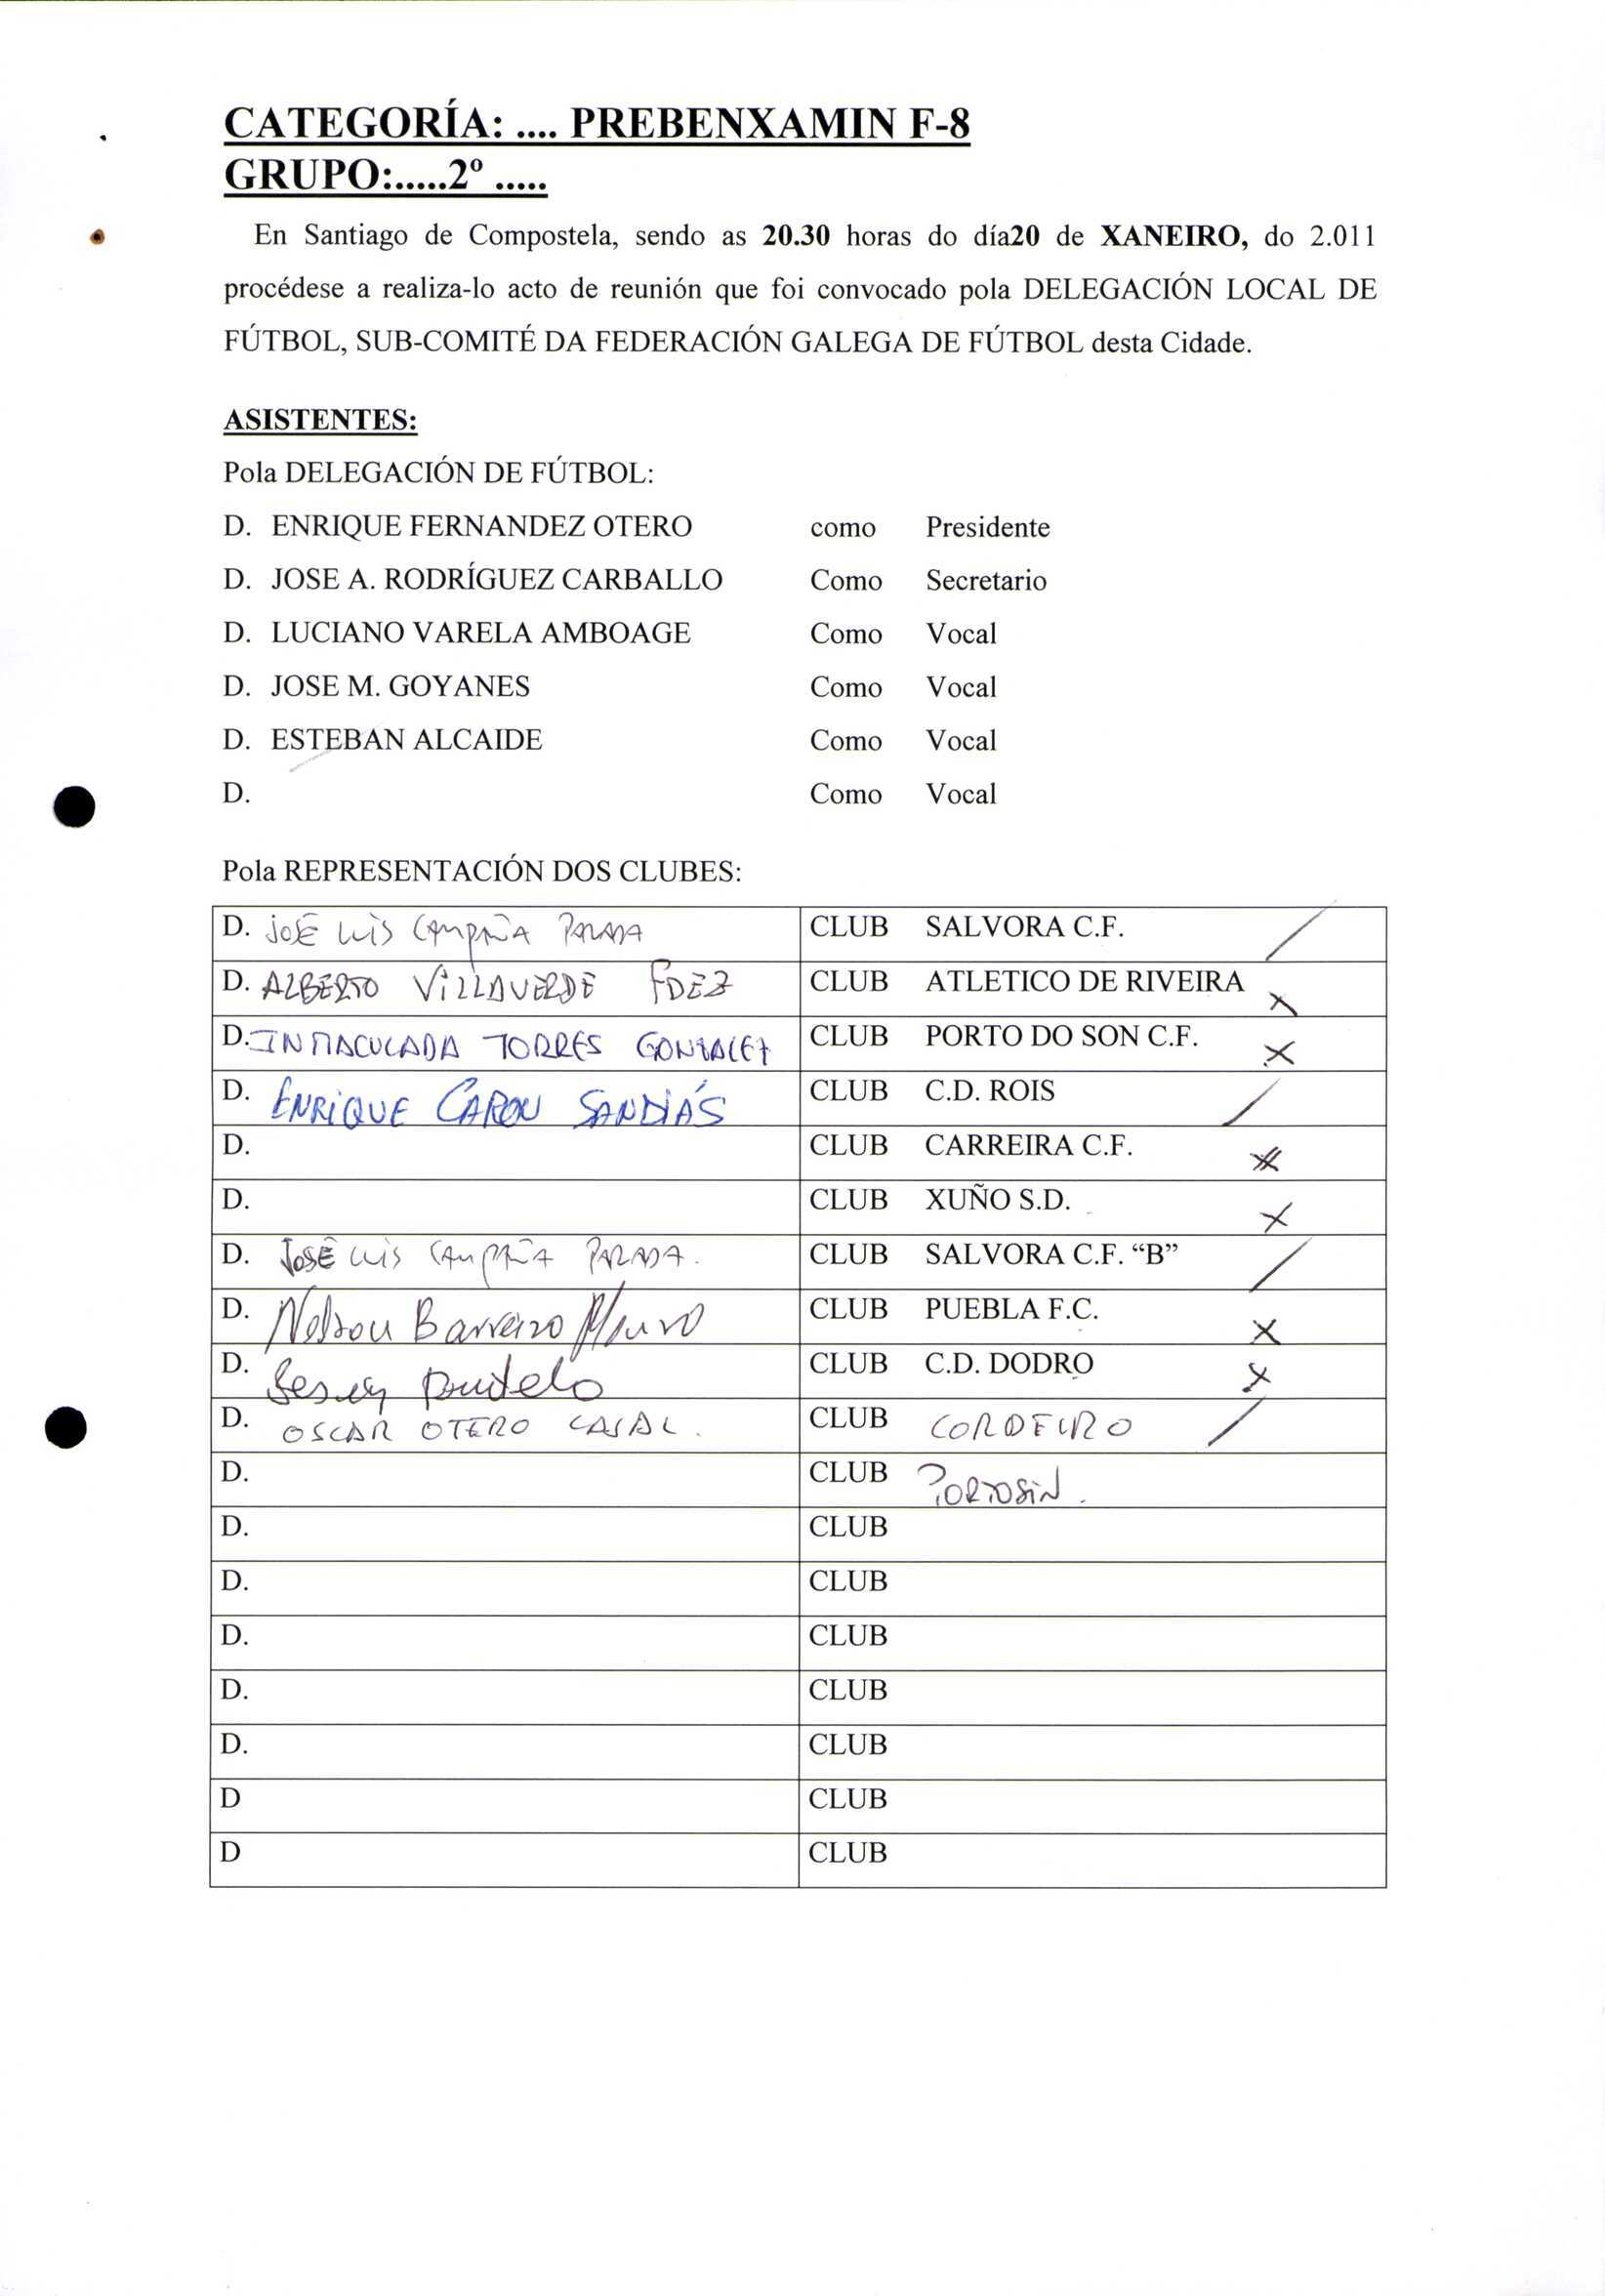 CATEGORÍA: .... PREBENXAMIN F-8
GRUPO:.....2º .....
En Santiago de Compostela, sendo as 20.30 horas do día20 de XANEIRO, do 2.011
procédese a realiza-lo acto de reunión que foi convocado pola DELEGACIÓN LOCAL DE
FÚTBOL, SUB-COMITÉ DA FEDERACIÓN GALEGA DE FÚTBOL desta Cidade.
ASISTENTES:
Pola DELEGACIÓN DE FÚTBOL:
D. ENRIQUE FERNANDEZ OTERO como Presidente
D. JOSE A. RODRÍGUEZ CARBALLO Como Secretario
D. LUCIANO VARELA AMBOAGE Como Vocal
D. JOSE M. GOYANES Como Vocal
D. ESTEBAN ALCAIDE Como Vocal
D. Como Vocal
Pola REPRESENTACIÓN DOS CLUBES:
D. JOSÉ LUIS CAMPAÑA PARADA CLUB SALVORA C.F.
D. ALBERTO VILLAVERDE FDEZ CLUB ATLETICO DE RIVEIRA
D. INMACULADA TORRES GONZALEZ CLUB PORTO DO SON C.F.
D. ENRIQUE CARON SANDIÁS CLUB C.D. ROIS
D. CLUB CARREIRA C.F.
D. CLUB XUÑO S.D.
D. JOSÉ LUIS CAMPAÑA PARADA. CLUB SALVORA C.F. “B”
D. Nelson Barreiro CLUB PUEBLA F.C.
D. CLUB C.D. DODRO
D. OSCAR OTERO CASAL. CLUB CORDEIRO
D. CLUB PORTOSIN.
D. CLUB
D. CLUB
D. CLUB
D. CLUB
D. CLUB
D CLUB
D CLUB